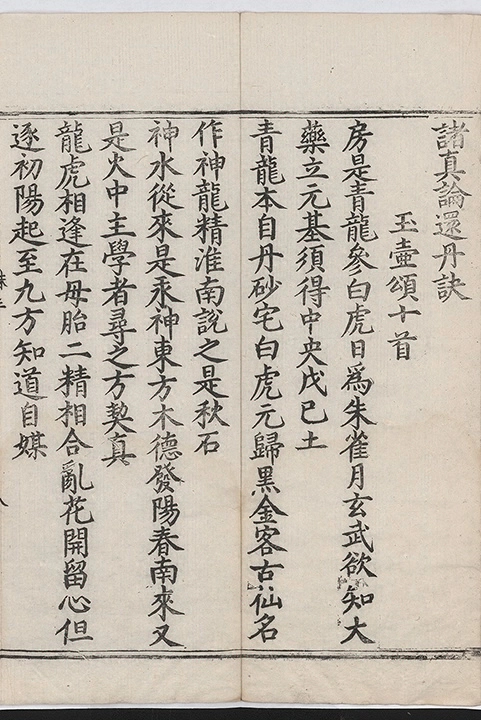 諸真論還丹訣
玉壷頌十首
房是青龍參白虎日為朱雀月玄武欲知大
藥立元基須得中央戊己土
青龍本自丹砂宅白虎元歸黑金客古仙名
作神龍精淮南說之是秋石
神水從來是汞神東方木德發陽春南來又
是火中主學者尋之方契真
龍虎相逢在母胎二精相合亂花開留心但
逐初陽起至九方知道自媒